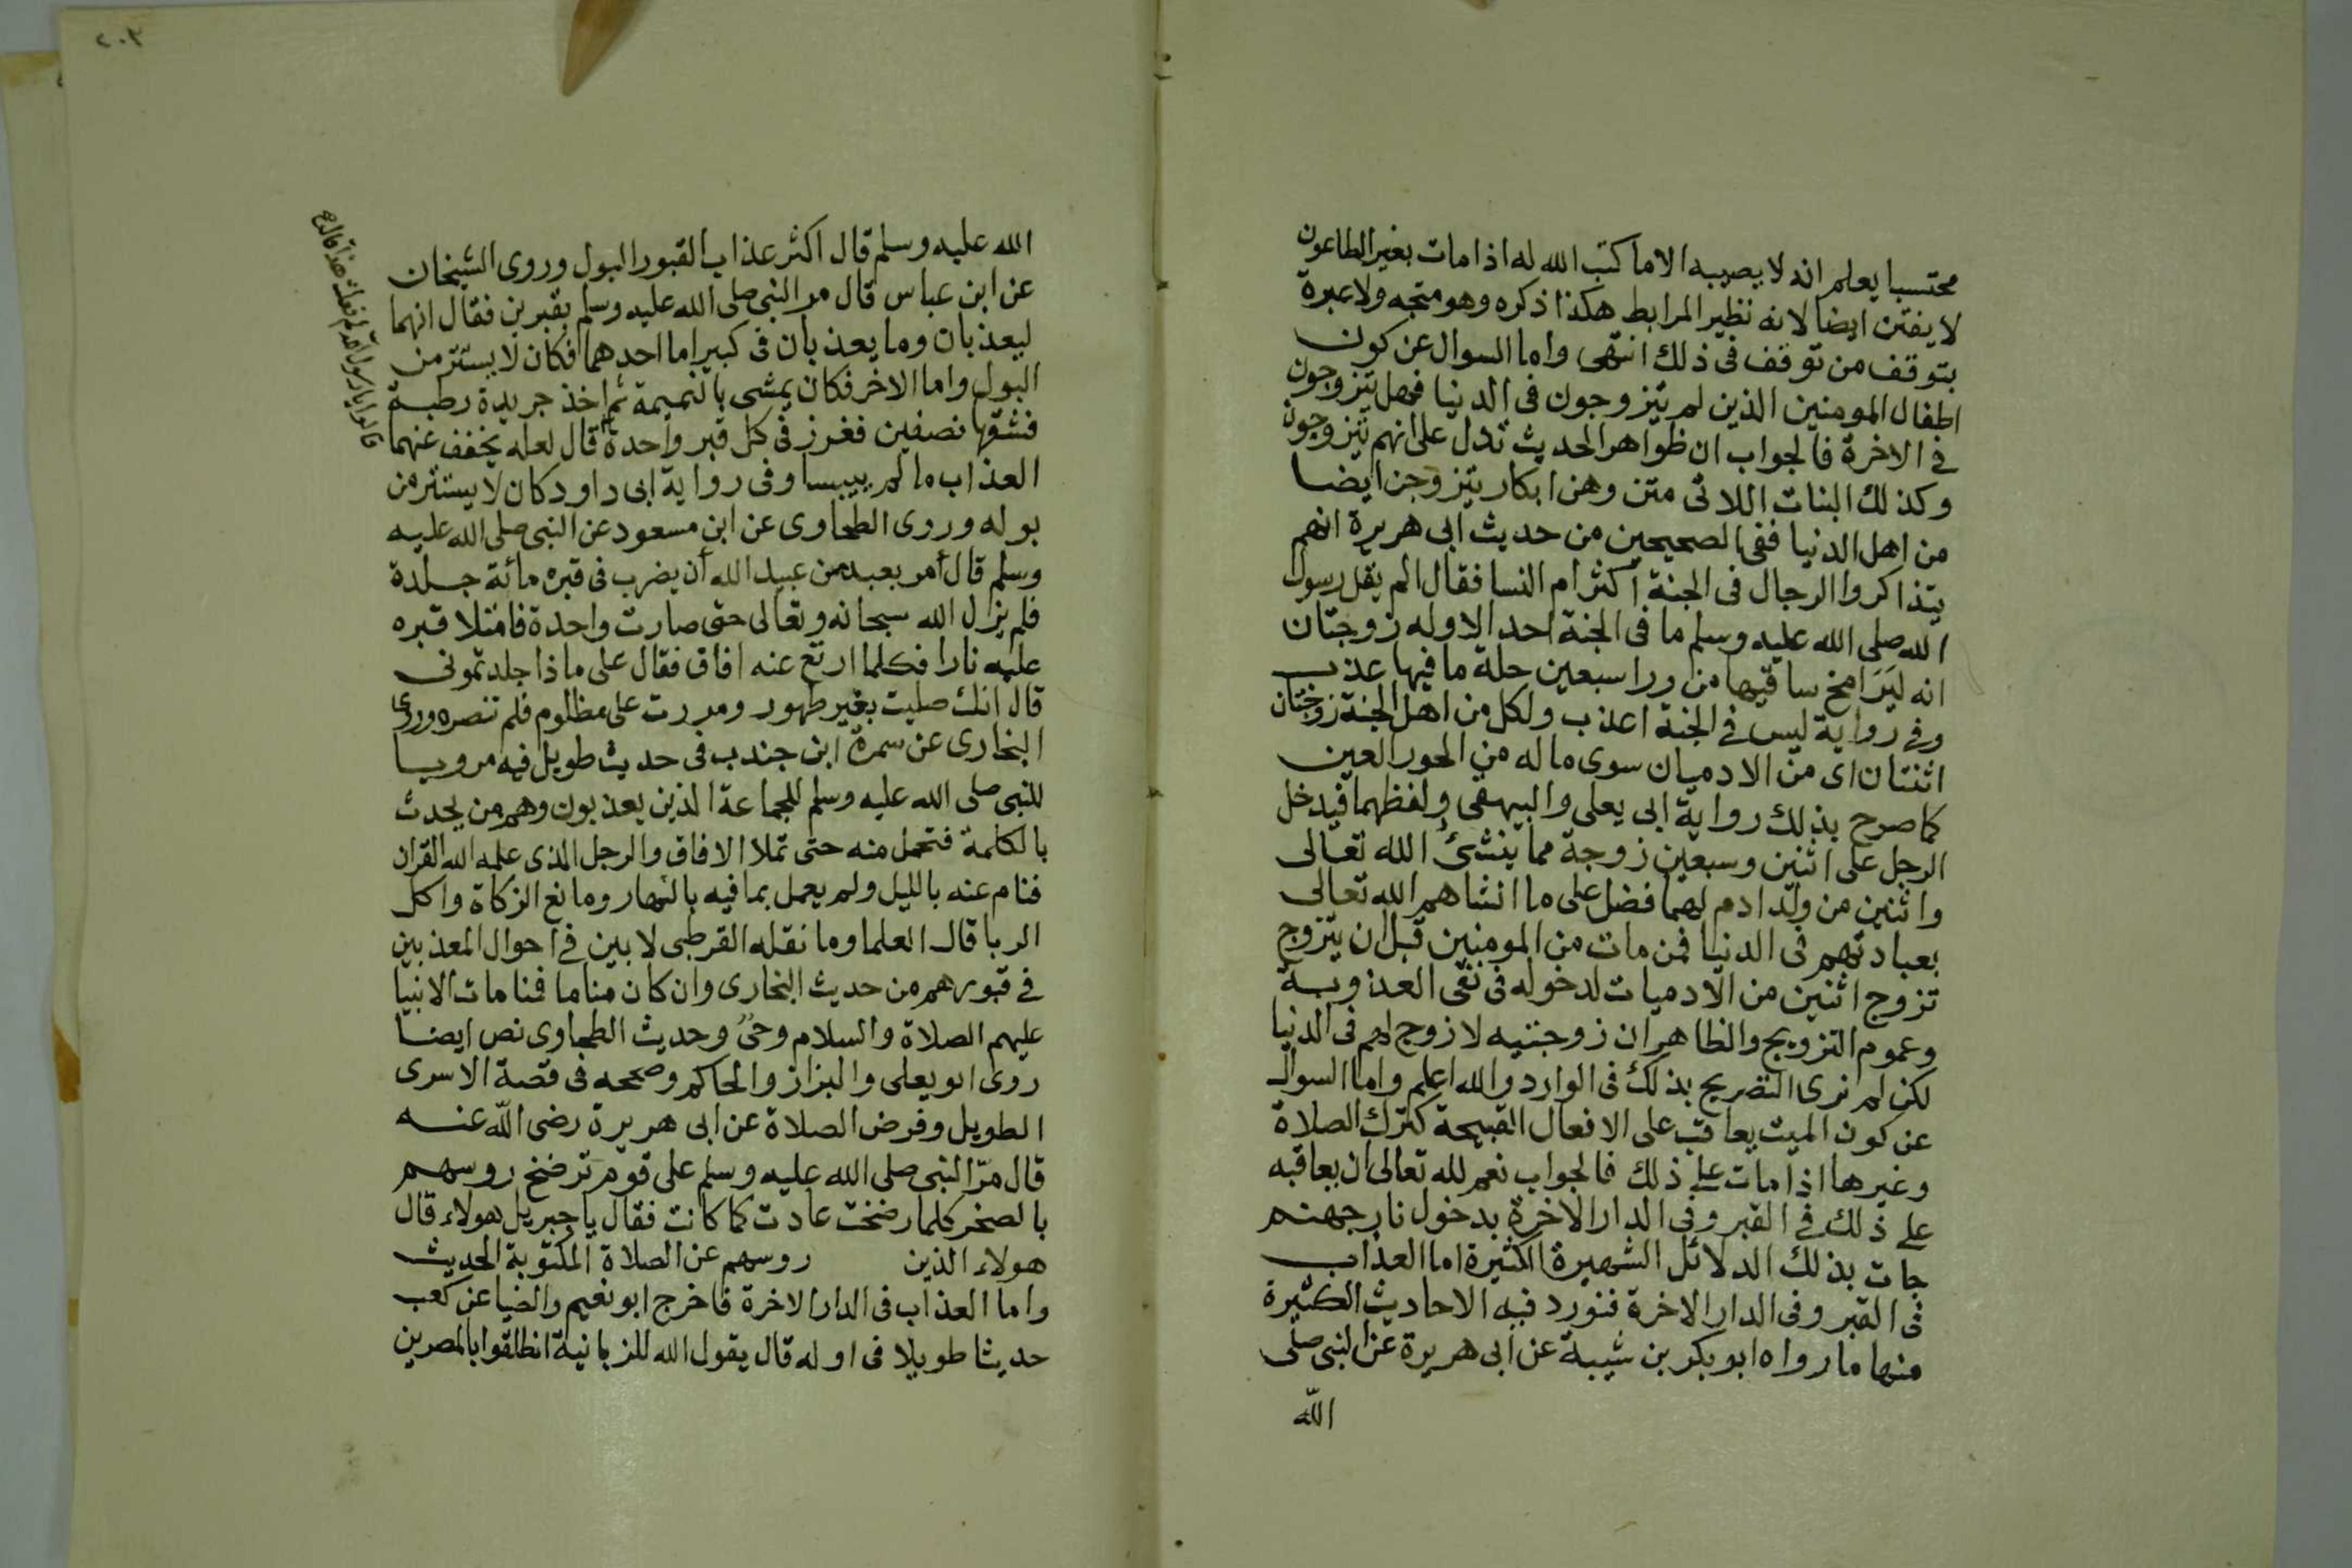 محتسبا يعلم انه لا يصيبه الا ما كتب الله له اذا مات بغير الطاعون
لا يفتن ايضا لانه نظير المرابط هكذا ذكره وهو متجه ولا عبرة
بتوقف من توقف فى ذلك انتهى واما السوال عن كون
اطفال المومنين الذين لم يتزوجون فى الدنيا فهل يتزوجون
في الاخرة فالجواب ان ظواهر الحديث تدل على انهم يتزوجون
وكذلك البنات اللاتى متن وهن ابكار يتزوجن ايضا
من اهل الدنيا ففى الصحيحين من حديث ابى هريرة انهم
يتذاكروا الرجال فى الجنة أكثر ام النسا فقال الم يقل رسول
الله صلى الله عليه وسلم ما فى الجنة احد الا وله زوجتان
انه ليَرَا مخ ساقيها من ورا سبعين حلة ما فيها عذب
وفي رواية ليس في الجنة اعذب ولكل من اهل الجنة زوجتان
اثنتان اى من الادميان سوى ماله من الحور العين
كما صرح بذلك رواية ابى يعلى والبيهقى ولفظهما فيدخل
الرجل على اثنين وسبعين زوجة مما ينشئ الله تعالى
واثنين من ولد ادم لهما فضل على ما انشاهم الله تعالى
بعبادتهم فى الدنيا فمن مات من المومنين قبل ان يتزوج
تزوج اثنين من الادميات لدخوله فى نفى العذوبة
وعموم التزويج والظاهر ان زوجتيه لا زوج لهم فى الدنيا
لكن لم نرى التصريح بذلك فى الوارد والله اعلم واما السوال
عن كون الميت يعاقب على الافعال القبيحة كترك الصلاة
وغيرها اذا مات على ذلك فالجواب نعم لله تعالى ان يعاقبه
على ذلك في القبر وفى الدار الاخرة بدخول نار جهنم
جات بذلك الدلائل الشهيرة الكثيرة اما العذاب
فى القبر وفى الدار الاخرة فنورد فيه الاحاديث الكثيرة
منها ما رواه ابو بكر بن شيبة عن ابى هريرة عن النبى صلى
الله
٢٠٣
الله عليه وسلم قال اكثر عذاب القبور البول وروى الشيخان
عن ابن عباس قال مر النبى صلى الله عليه وسلم بقبرين فقال انهما
ليعذبان وما يعذبان فى كبير اما احدهما فكان لا يستتر من
البول واما الاخر فكان يمشى بالنميمة ثم اخذ جريدة رطبة
فشقها نصفين فغرز فى كل قبر واحدة قال لعله يخفف عنهما
قالوا يا رسول الله لم فعلت هذا قال
العذاب ما لم ييبسا وفى رواية ابى داود كان لا يستتر من
بوله وروى الطحاوى عن ابن مسعود عن النبى صلى الله عليه
وسلم قال أمر بعبد من عبيد الله أن يضرب فى قبره مائة جلدة
فلم يزل الله سبحانه وتعالى حتى صارت واحدة فامتلا قبره
عليه نارا فكلما ارتع عنه افاق فقال على ماذا جلدتمونى
قال انك صليت بغير طهور ومررت على مظلوم فلم تنصره وروى
البخارى عن سمرة ابن جندب فى حديث طويل فيه مرويا
للنبى صلى الله عليه وسلم للجماعة الذين يعذبون وهم من يحدث
بالكلمة فتحمل منه حتى تملا الافاق والرجل الذى علمه الله القران
فنام عنه بالليل ولم يعمل بما فيه بالنهار ومانع الزكاة واكل
الربا قال العلما وما نقله القرطبى لا بين في احوال المعذبين
في قبورهم من حديث البخارى وان كان مناما فمنامات الانبيا
عليهم الصلاة والسلام وحىٌ وحديث الطحاوى نص ايضا
روى ابو يعلى والبزاز والحاكم وصححه فى قصة الاسرى
الطويل وفرض الصلاة عن ابى هريرة رضى الله عنه
قال مرّ النبى صلى الله عليه وسلم على قوم ترضخ روسهم
بالصخر كلما رضخت عادت كما كانت فقال يا جبريل هولاء قال
هولاء الذين روسهم عن الصلاة المكتوبة الحديث
واما العذاب فى الدار الاخرة فاخرج ابو نعيم والضيا عن كعب
حديثا طويلا فى اوله قال يقول الله للزبانية انطلقوا بالمصرين